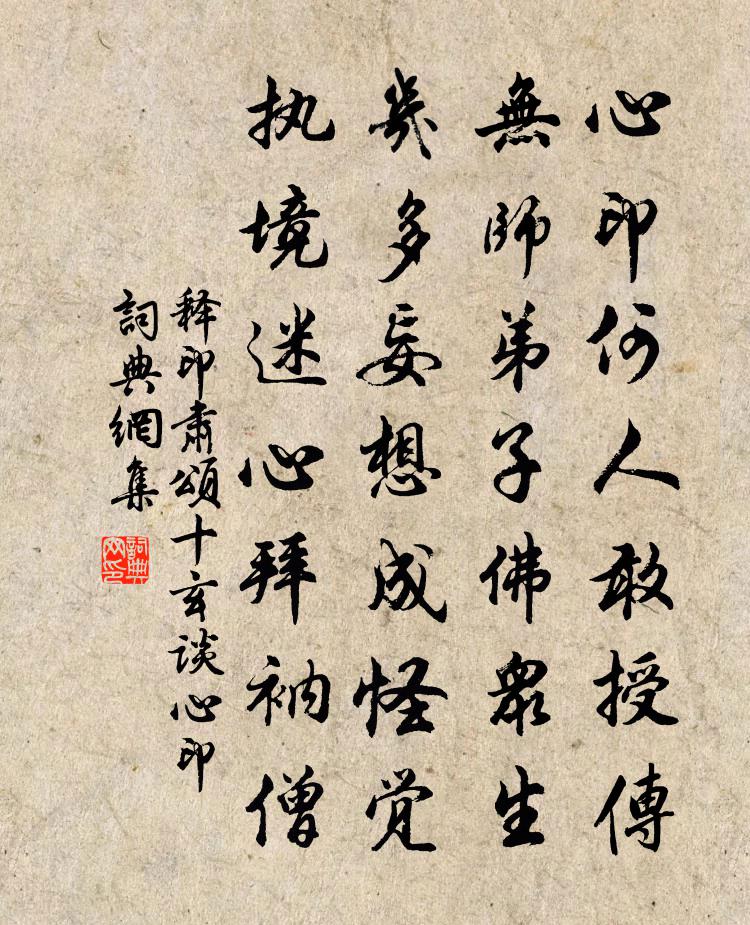 心印何人敢授傳
無師弟子佛眾生
幾多妄想成怪觉
执境迷心拜衲僧
释印肅頌十玄談心印
詞典網集
詞典网印